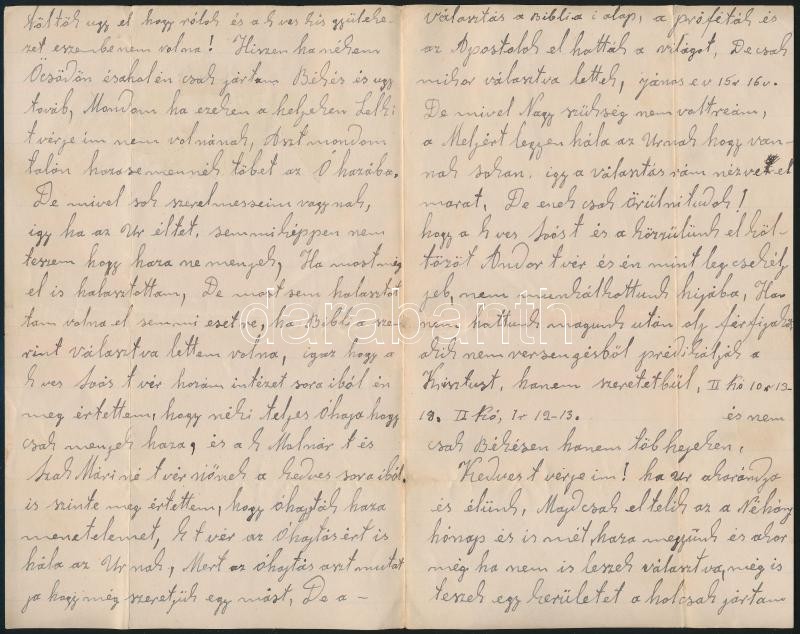 töttök ugy el hogy rólok és a k ves kis gyüleke-
zet eszembe nem volna! Hiszen ha nékem
Öcsödön és akol én csak jártam Békés és ugy
továb, Mondom ha ezeken a helyeken Lelki
t vérjeim nem volnának, Aszt mondom
talán haza se mennék töbet az Ó hazába.
De mivel sok szerelmesseim vagynak,
igy ha az Ur éltet, semmiképpen nem
teszem hogy haza ne menyek, Ha most még
el is halasztottam, De most sem halasztot
tam volna el semmi esetre, ha Biblia sze-
rint választva lettem volna, igaz hogy a
k ves Soós t vér hozám intézet soraiból én
meg értettem, hogy néki teljes óhaja hogy
csak menyek haza, és a k Molnár t és
Szak Máriné t vér nőnek a kedves soraiból
is szinte meg értettem, hogy óhajták haza
menetelemet, k t vér az Óhajtásért is
hála az Urnak, Mert az óhajtás aszt mutat
ja hogy még szeretjük egy mást, De a-
választás a Biblia i alap, a próféták és
az Apostolok el hatták a világot, De csak
mikor választva lettek, János ev 15r 16v.
De mivel Nagy szükség nem volt reám,
a Melyért legyen hála az Urnak hogy van-
nak sokan, igy a választás rám nézve el
marat, De enek csak örülni tudok!
hogy a k ves Soóst és a közzülünk el köl-
tözöt Andor t vér és én mint leg csekély
jeb, nem munkálkottunk hijába, Ha-
nem hattunk magunk után oly férfijakat
akik nem versengésből prédikálják a
Krisztust, hanem szeretetbül, II Kó 10r 13-
18. II Kó, 1r 12-13. és nem
csak Békésen hanem töb hejeken,
Kedves t vérjeim! ha Ur akarándja
és élünk, Majd csak eltelik az a Néhány
hónap és is mét haza megyünk és akor
még ha nem is leszek választva, még is
teszek egy kerületet a hol csak jártam
darabanth